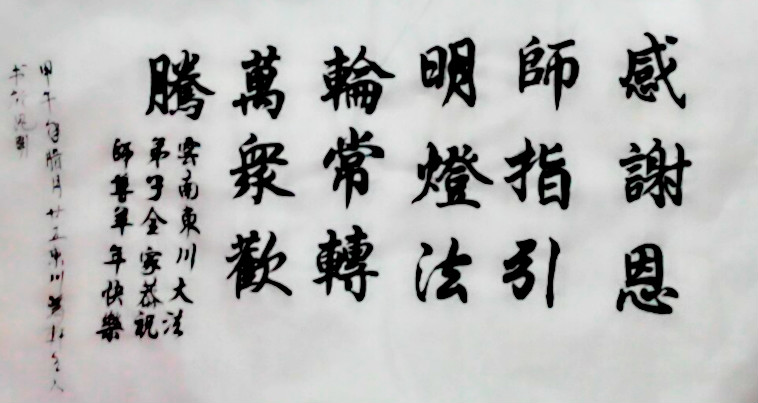 感謝恩
師指引
明燈法
輪常轉
萬衆歡
騰
雲南東川大法
弟子全家恭祝
師尊羊年快樂
甲午年腊月廿五東川